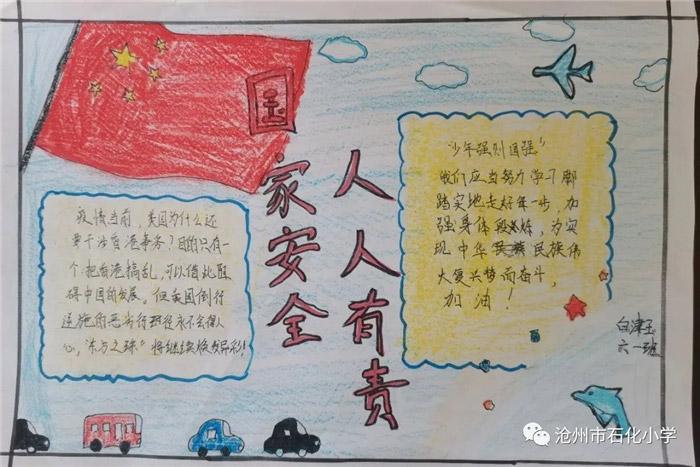 国家安全
人人有责
疫情当前，美国为什么还
要干涉香港事务？目的只有一
个：把香港搞乱，可以借此阻
碍中国的发展。但美国倒行
逆施的恶劣行径永不会得人
心，“东方之珠”将继续焕发异彩！
“少年强则国强”
我们应当努力学习脚
踏实地走好每一步，加
强身体锻炼，为实
现中华民族伟
大复兴梦而奋斗，
加油！
白津玉
六一班
沧州市石化小学